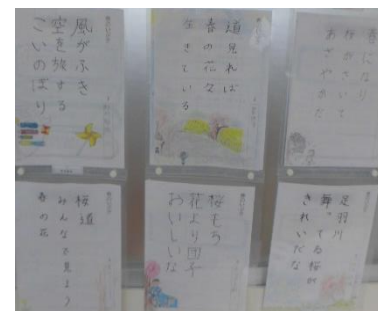 風がふき
空を旅する
こいのぼり
道見れば
春の花な
生きている
春になり
桜のさいて
あざやかだ
桜道
みんなで見よう
春の花
桜もち
花より団子
おいしいな
足羽川
舞ってる桜が
きれいだな